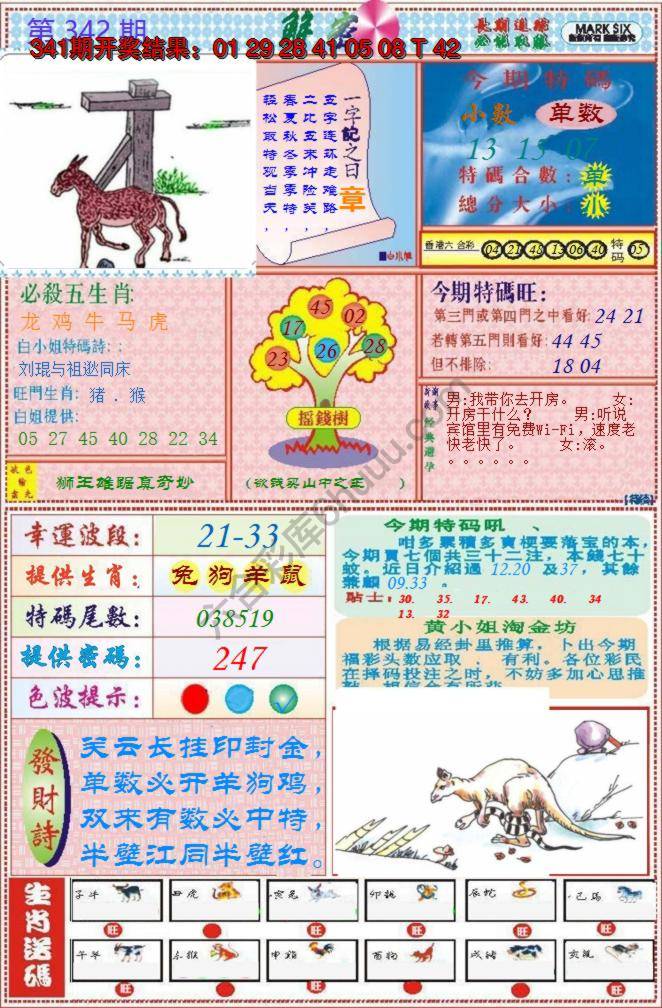 第 342 期
解密
長期追踪
必能取勝
MARK SIX
341期开奖结果：01 29 28 41 05 08 T 42
一字記之曰 章
五字连环走难路，
二比五来冲险笑，
春夏秋冬季季特，
轻松取特观当天，
今期特碼
小數 单数
13 15 07
特碼合數：单
總分大小：小
香港六合彩 04 21 48 13 06 40 特码 05
必殺五生肖
龙 鸡 牛 马 虎
白小姐特碼詩：:
刘琨与祖逖同床
旺門生肖：猪．猴
白姐提供:
05 27 45 40 28 22 34
狮王雄踞真奇妙
45
02
17
23
26
28
搖錢樹
（欲钱买山中之王 ）
今期特碼旺:
第三門或第四門之中看好: 24 21
若轉第五門則看好: 44 45
但不排除: 18 04
男:我带你去开房。 女:
开房干什么？ 男:听说
宾馆里有免费Wi-Fi，速度老
快老快了。 女:滚。
。。。。。。
幸運波段: 21-33
提供生肖: 兔 狗 羊 鼠
特碼尾數: 038519
提供密碼: 247
色波提示:
今期特码吼 、
咁多票積多寶梗要落宝的本，
今期買七個共三十二注，本錢七十
蚊。近日介紹過 12.20 及37，其餘
兼顧 09.33 。
貼士: 30. 35. 17. 43. 40. 34
13. 32
黄小姐淘金坊
根据易经卦里推算，卜出今期
福彩头数应取 、有利。各位彩民
在择码投注之时，不妨多加心思推
發財詩
关云长挂印封金，
单数必开羊狗鸡，
双来有数必中特，
半壁江同半壁红。
生肖送碼
子牛 丑虎 寅兔 卯龍 辰蛇 巳馬
旺 旺 旺 旺
午羊 未猴 申鷄 酉狗 戌豬 亥鼠
旺 旺 旺
六合彩库6huuu.com